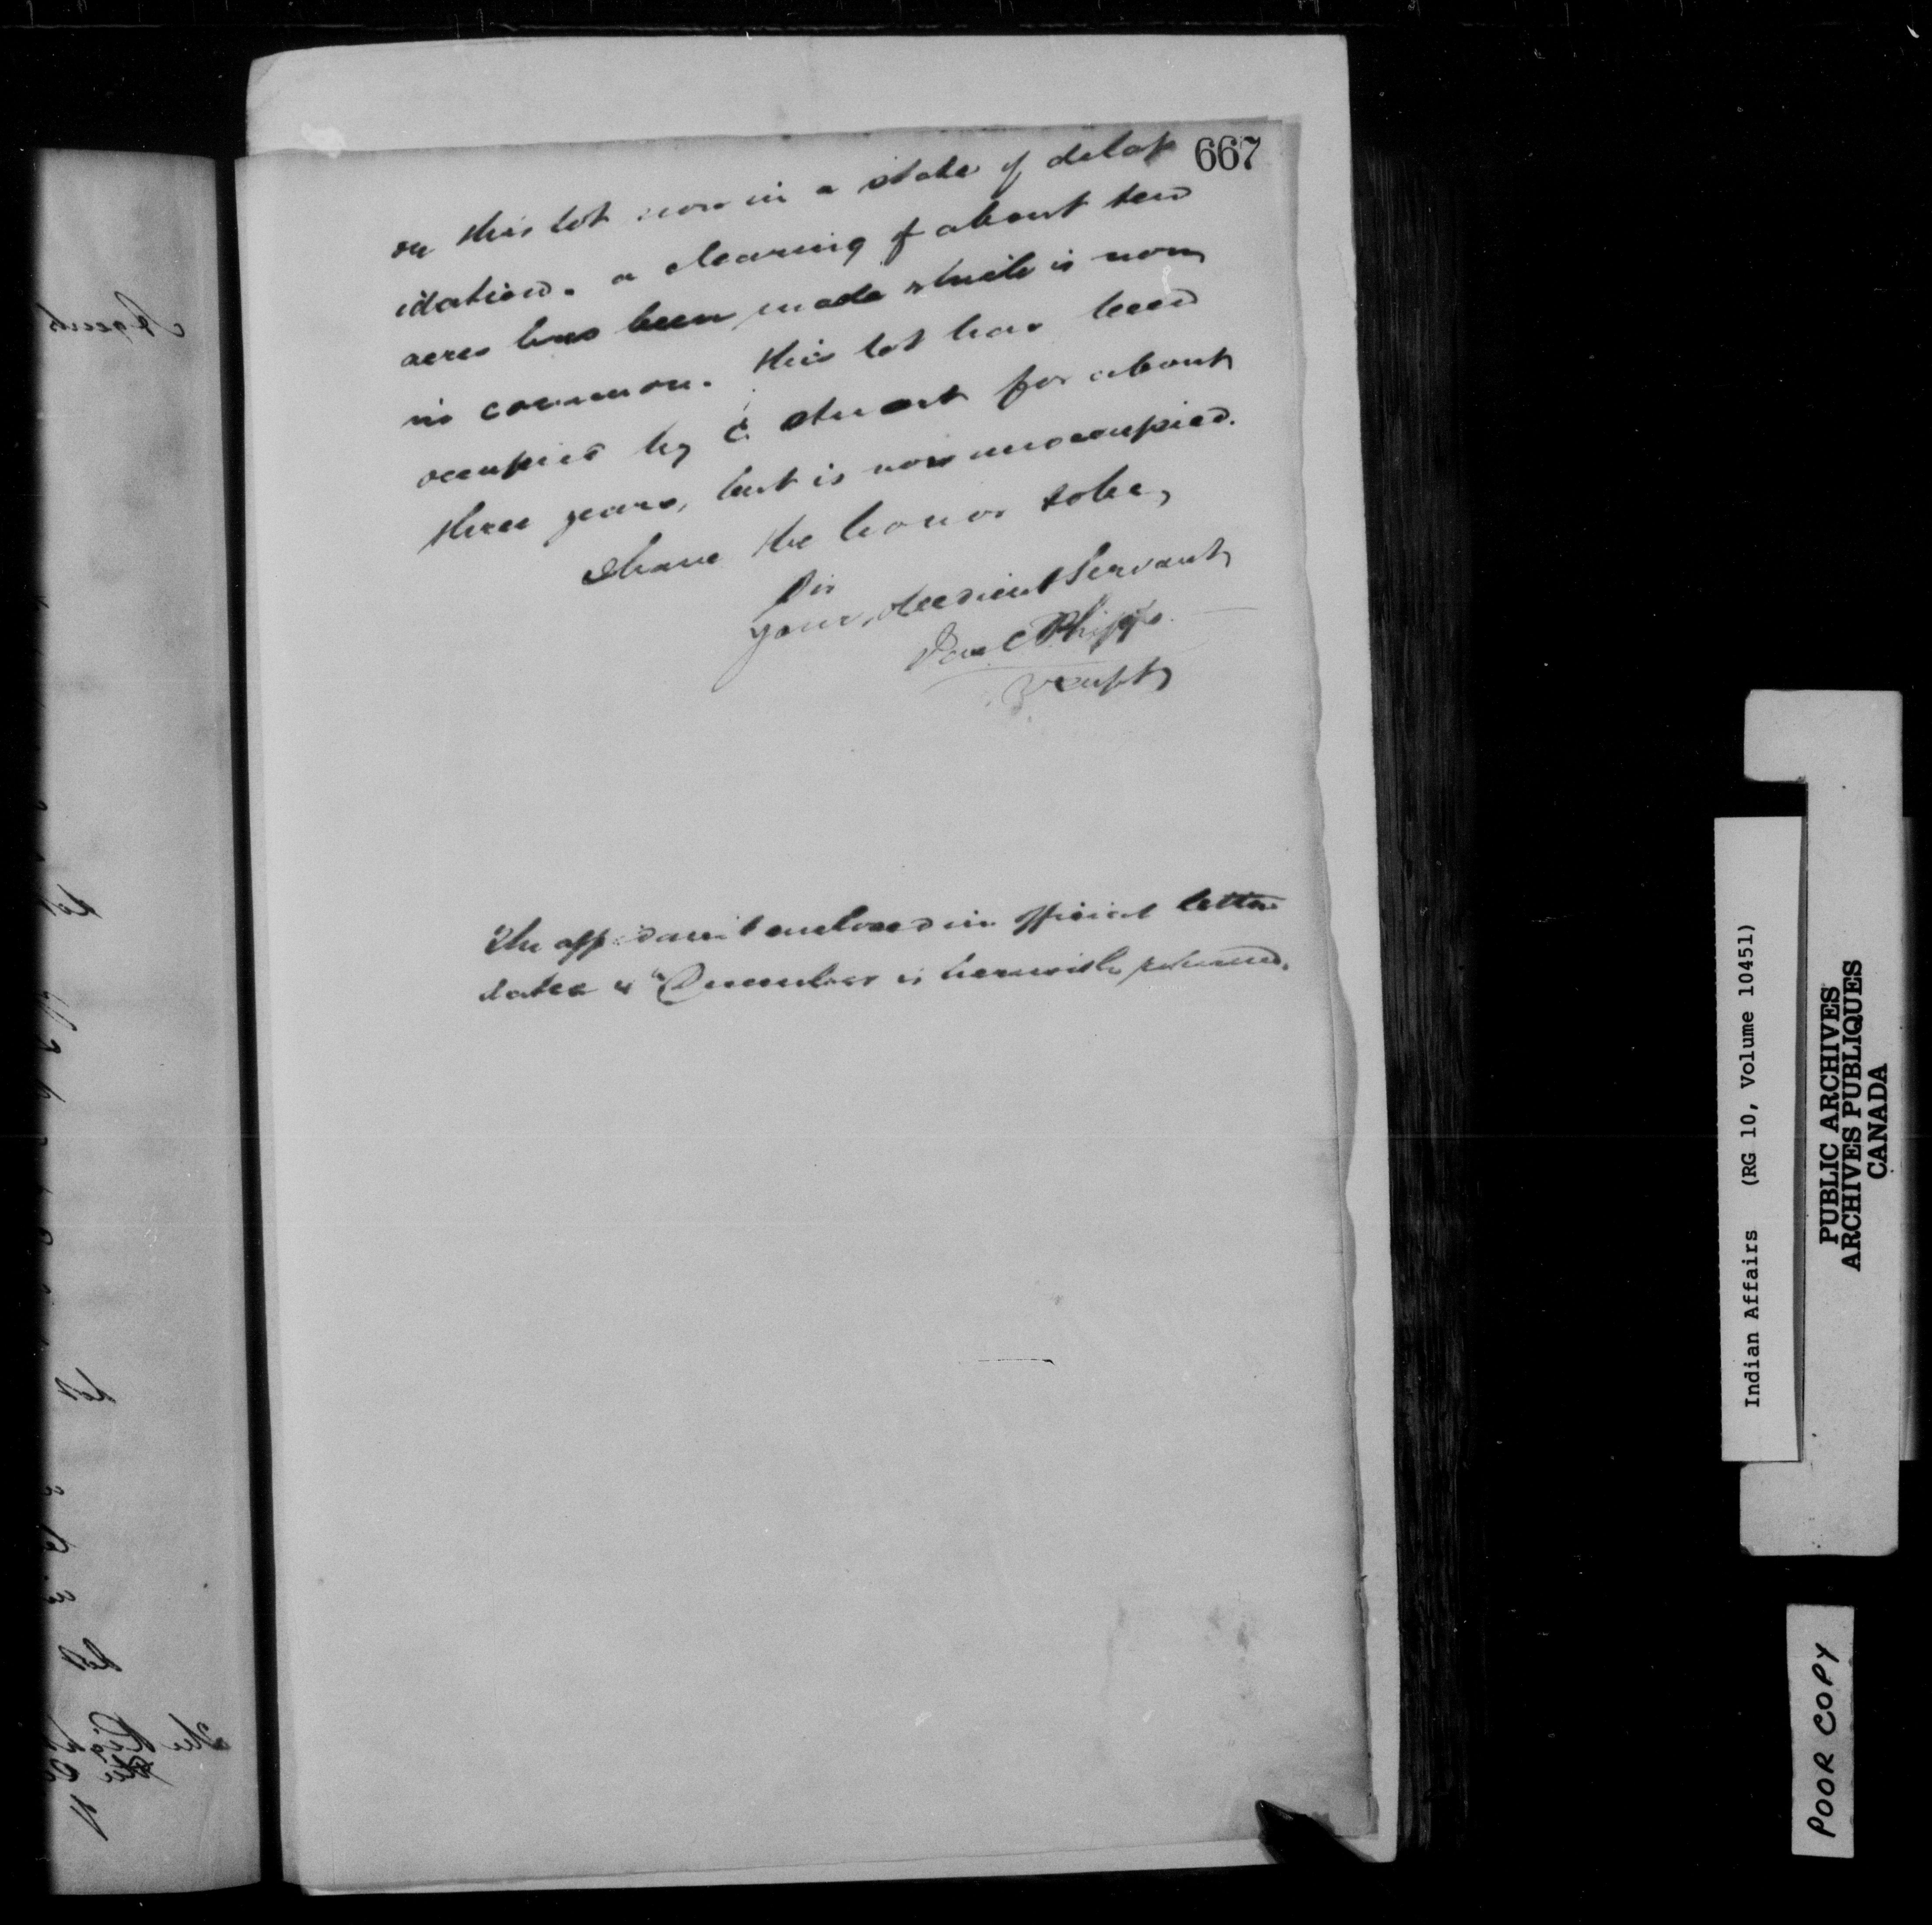 667
on this lot now in a state of delap
idation. a clearing of about ten
acres has been made which is now
in common. this lot has been
occupied by C Stuart for about
three years, but is now unoccupied.
I have the honor to be,
Sir
your obedient Servant
Jas C Phipps
V Supt
The affidavit enclosed in official letter
dated 4th December is herewith returned.
Agents
Indian Affairs (RG 10, Volume 10451)
PUBLIC ARCHIVES
ARCHIVES PUBLIQUES
CANADA
POOR COPY